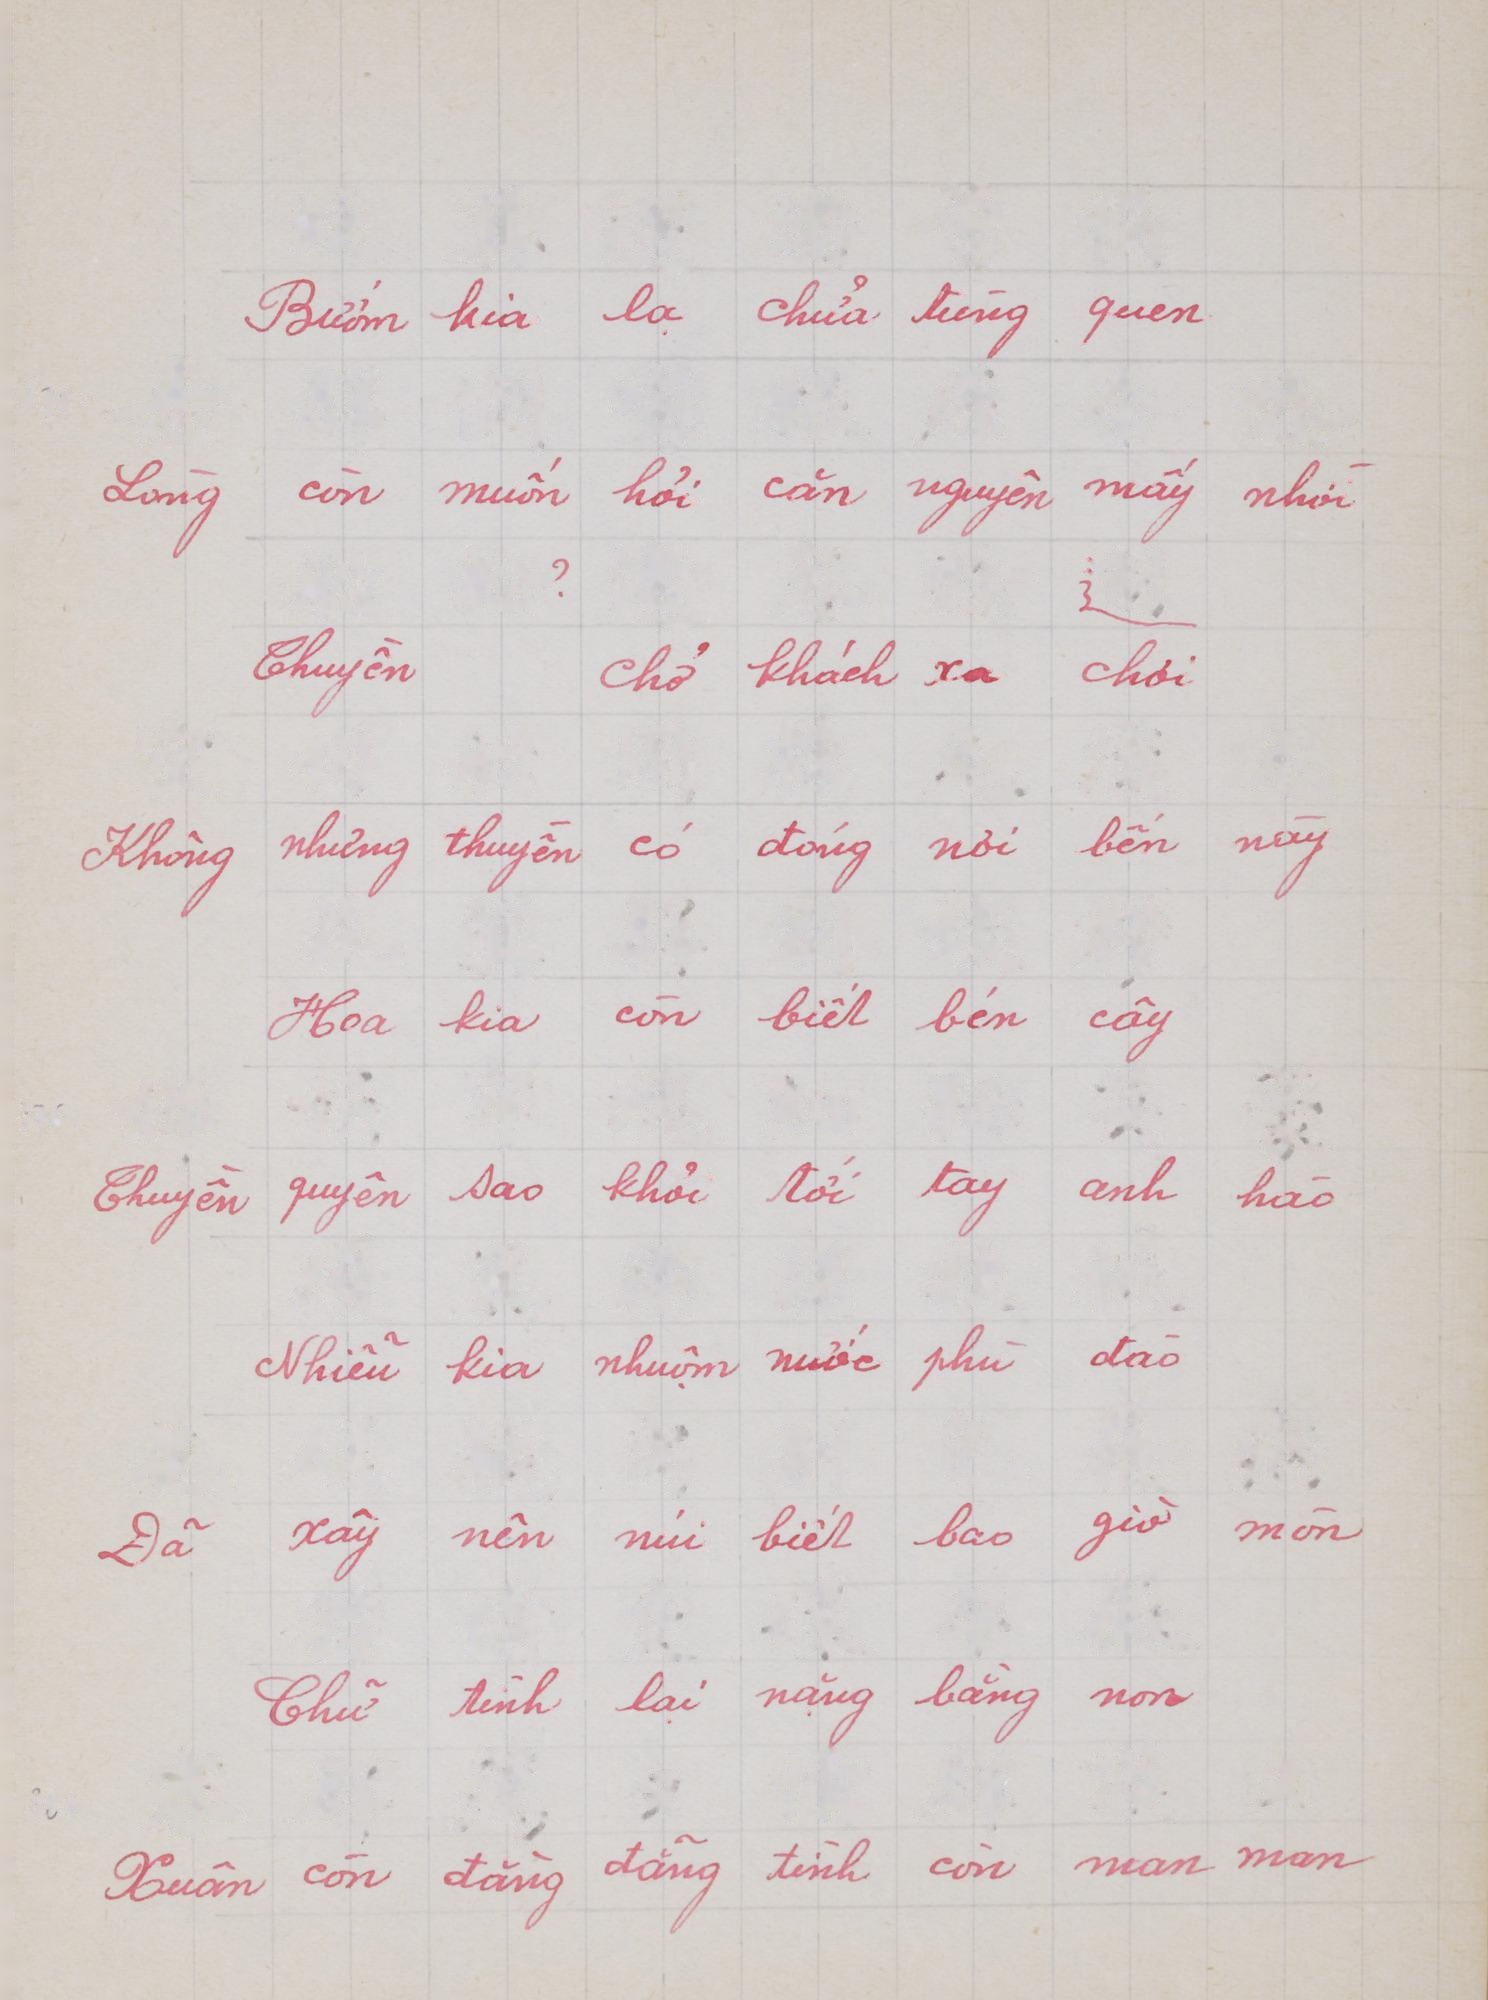 Bướm kia lạ chửa từng quen
Lòng còn muốn hỏi căn nguyên mấy nhời
?
Thuyền chở khách xa chơi
Không nhưng thuyền có đóng nơi bến này
Hoa kia còn biết bén cây
Thuyền quyên sao khỏi tới tay anh hào
Nhiễu kia nhuộm nước phù đào
Đã xây nên núi biết bao giờ mòn
Chữ tình lại nặng bằng non
Xuân còn đằng đẵng tình còn man man